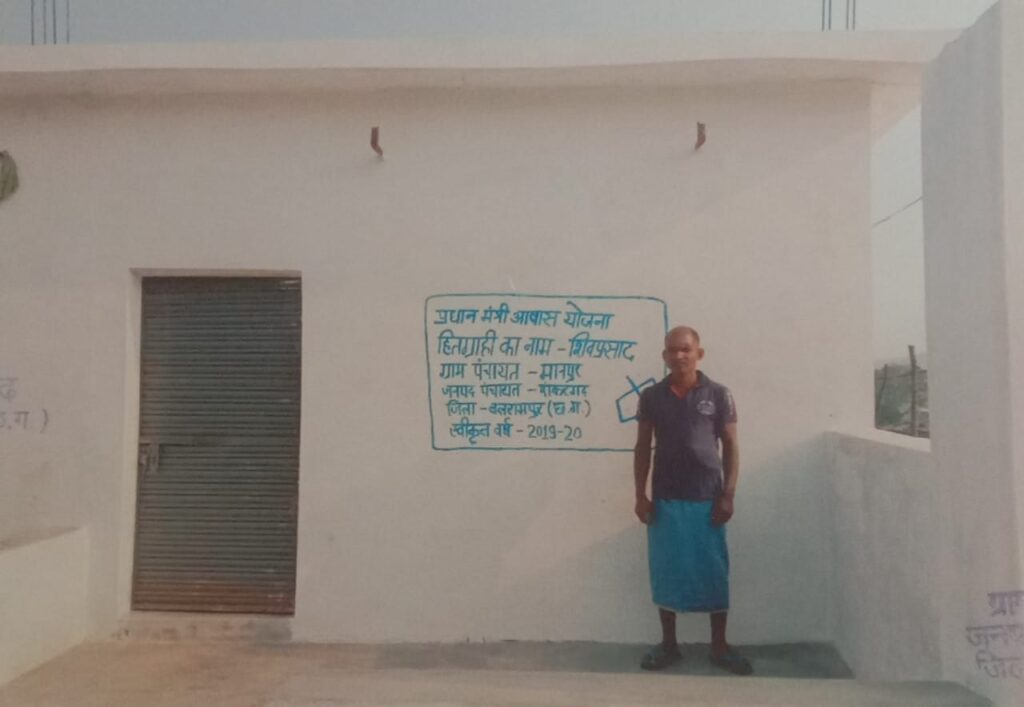 प्रधान मंत्री आवास योजना
हितग्राही का नाम - शिवप्रसाद
ग्राम पंचायत - मानपुर
जनपद पंचायत -
जिला - बलरामपुर (छ.ग.)
स्वीकृत वर्ष - 2019-20